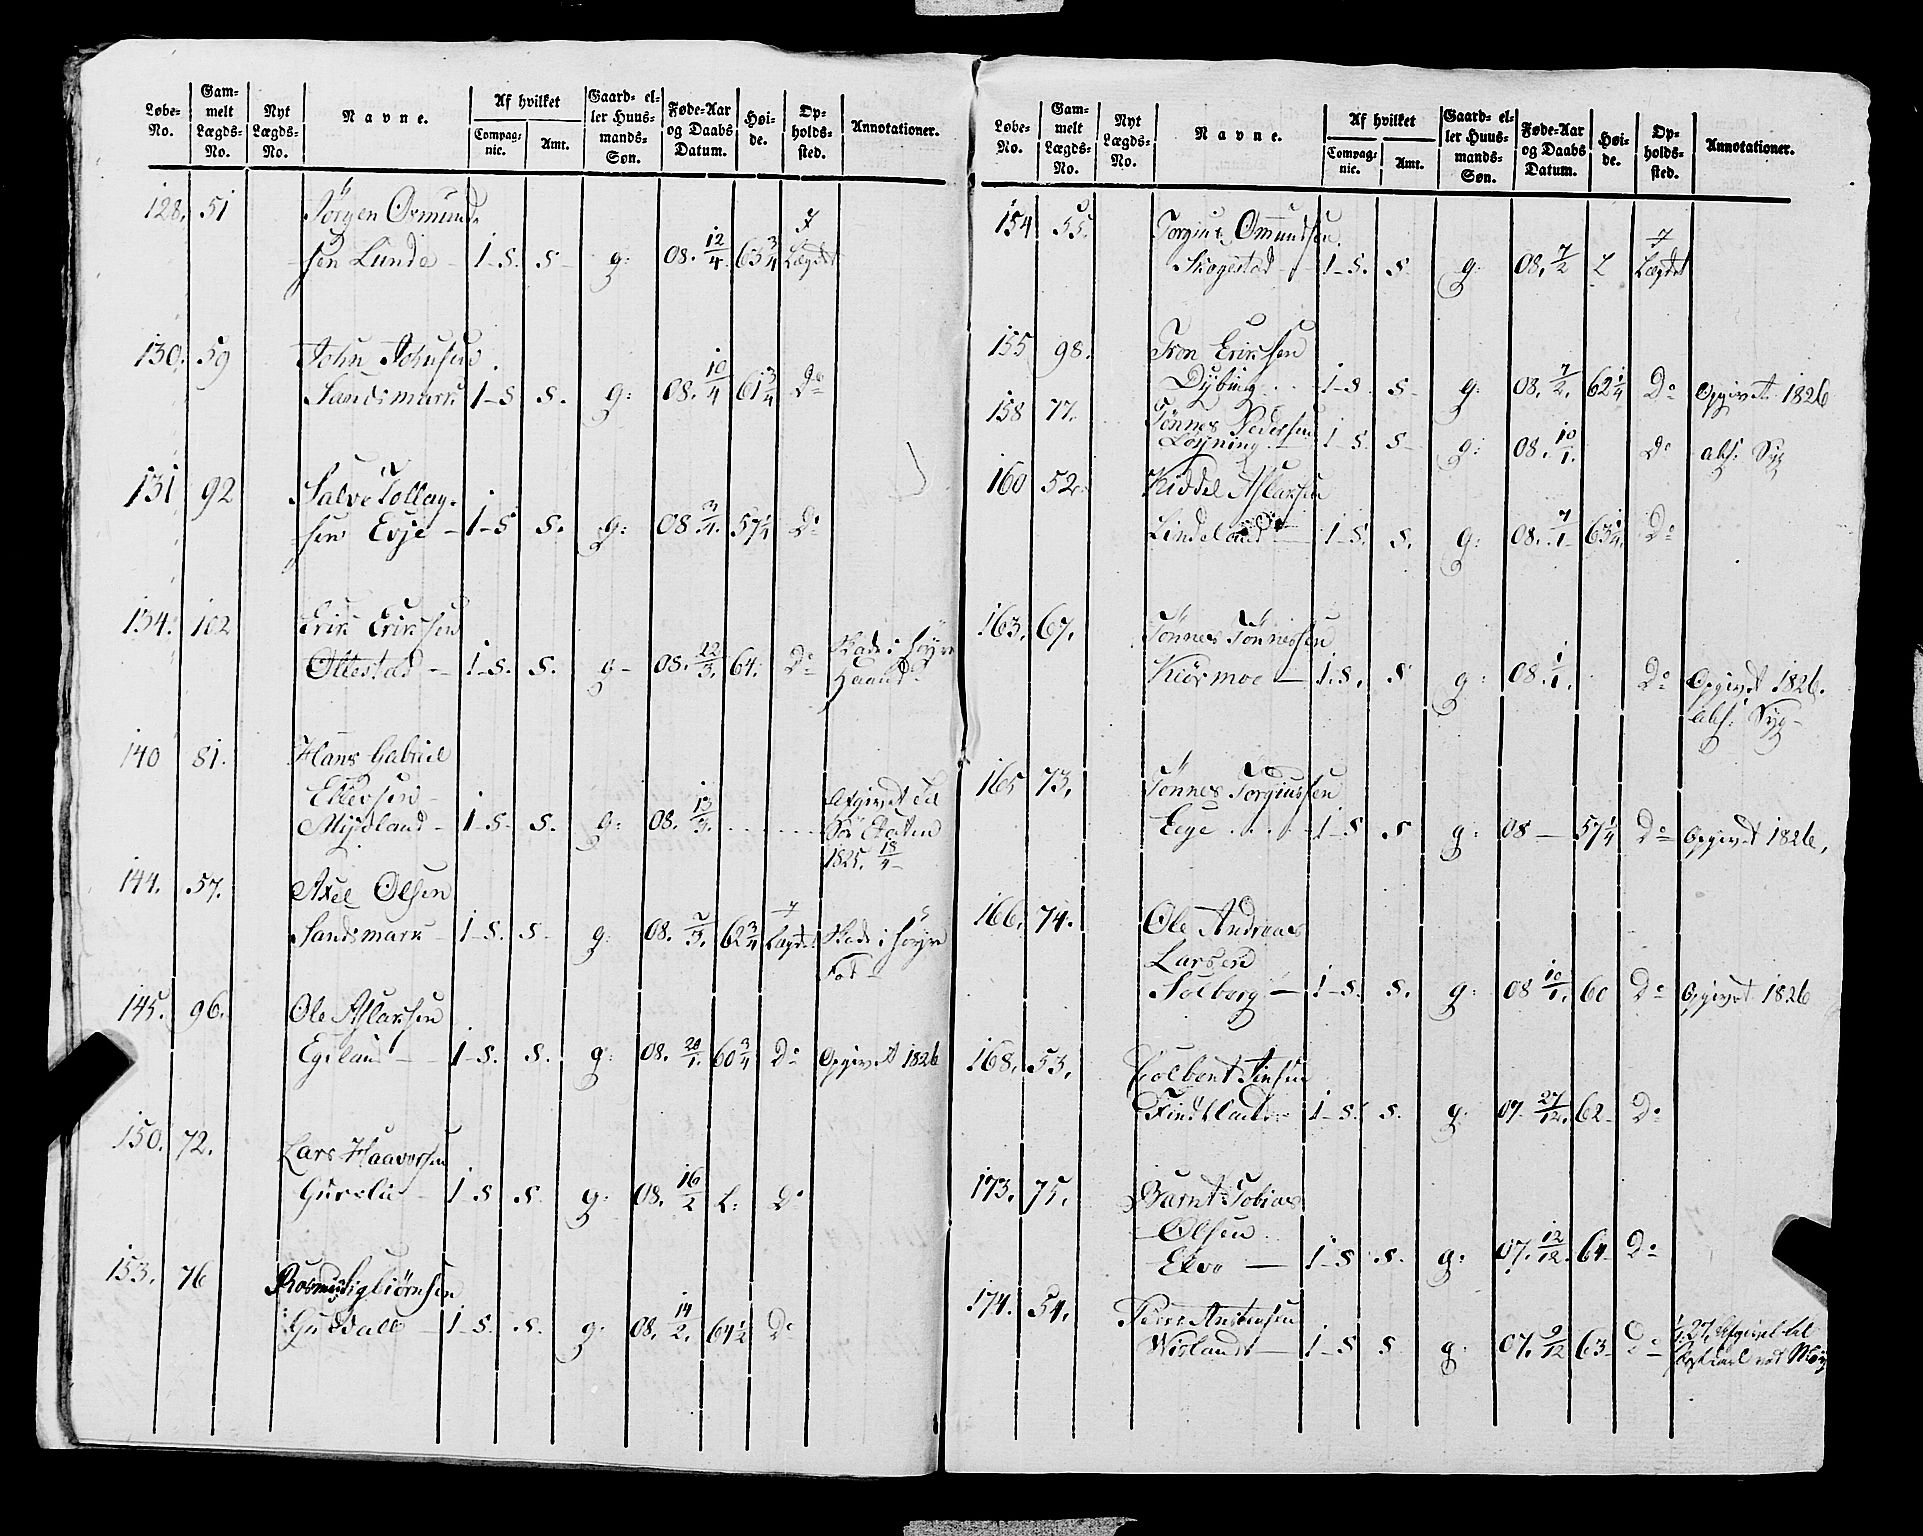 Løbe-No. Gammelt Lægds-No. Nyt Lægds-No. Navne. Af hvilket Compagnie. Amt. Gaard- eller Huusmands-Søn. Føde-Aar og Daabs Datum. Høide. Opholdssted. Annotationer.
128. 51 Jörgen Osmund-
sen Lunde 1-S. S g: 08. 12/4 63 3/4 I Lægdet
130. 59 John Johnsen
Sandsmark 1-S S. g: 08. 10/4 61 3/4 Do
131 92 Salve Tollag-
sen Evje 1-S S. g: 08 3/4. 57 1/4 Do
134. 102 Erik Eriksen
Ollestad 1-S. S. g 08. 12/3. 64. Do Skade i Höyre
Haand
140 81. Hans Gabriel
Ellersen
Mydland 1-S. S. g: 08. 13/3. Afgivet til
Sö Etaten
1825. 18/4
144. 57. Axel Olsen
Sandsmark 1-S. S. g: 08. 2/3. 62 3/4 I Lægdet Skade i Höyre
Fod
145. 96. Ole Aslaksen
Egeland 1-S. S. g: 08. 20/1. 60 3/4 Do Opgivet 1826
150. 72. Lars Haavorsen
Gursli 1-S S. g: 08. 16/2 L: Do
153. 76 Rasmus Sigbiörnsen
Guddall 1-S. S. g: 08. 14/2. 64 1/2 Do
Løbe-No. Gammelt Lægds-No. Nyt Lægds-No. Navne. Af hvilket Compagnie. Amt. Gaard- eller Huusmands-Søn. Føde-Aar og Daabs Datum. Høide. Opholdssted. Annotationer.
154 55. Torgius Omundsen
Skogestad 1-S. S. g: 08. 7/2 L I Lægdet
155 98. Tron Eriksen
Dybing 1-S S g: 08. 7/2. 62 1/4 Do Opgivet 1826
158 77. Tönnes Pedersen
Löyning 1-S. S g: 08. 10/1. Do abs: Syg
160 52. Kiddel Aslaksen
Lindeland 1-S. S. g: 08. 7/1 63 1/4. Do
163. 67. Tönnes Tönnessen
Kiörmoe 1.S. S g: 08. 1/1. Do Opgivet 1826.
abs: Syg
165 73. Tönnes Torgiussen
Eege 1-S S g: 08 57 1/4 Do Opgivet 1826.
166. 74. Ole Andreas
Larsen
Solberg 1-S. S. g: 08 10/1. 60 Do Opgivet 1826
168. 53. Tolbent
Findtland 1-S. S. g. 07. 27/12. 62 Do
173. 75. Barnt Tobias
Olsen
1-S S. g: 07. 12/12. 64 Do
174. 54. Peder Austensen
Wisland 1-S S g. 07. 9/12 63 Do 27 Afgivet til